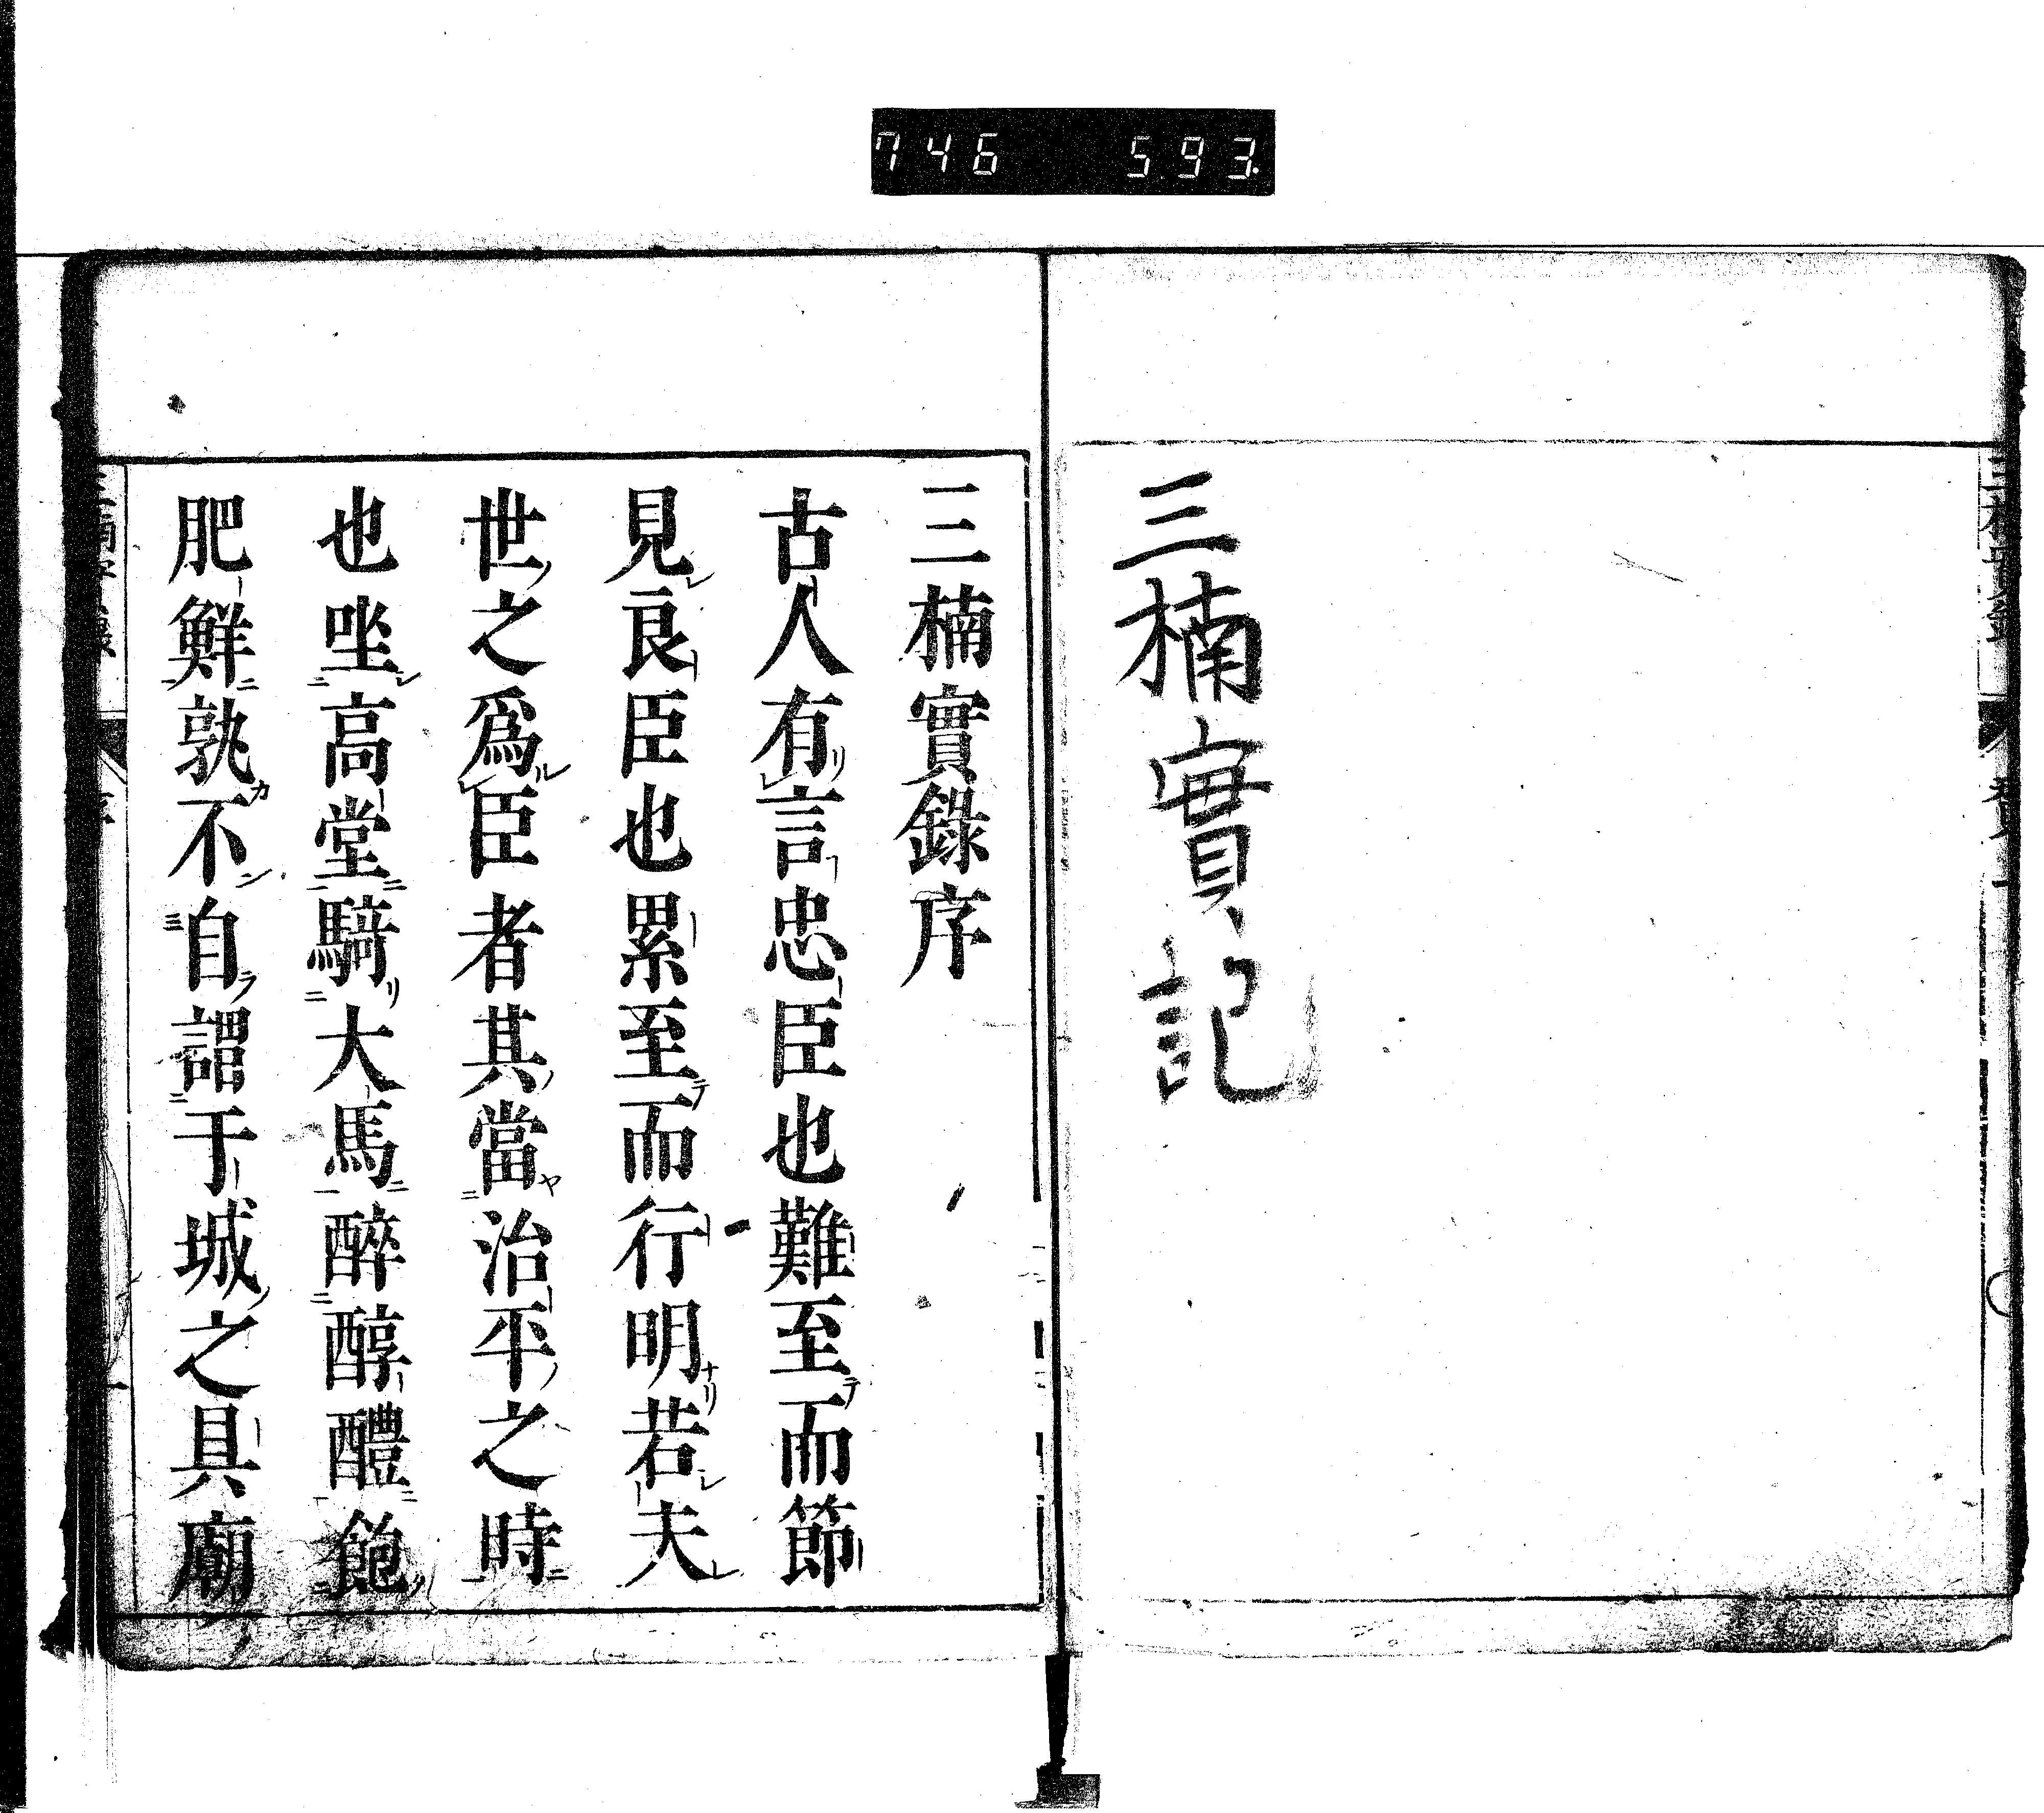 746 593
三楠實記
三楠實錄序
古人有言忠臣也難至而節
見良臣也累至而行明若夫
世之爲臣者其當治平之時
也坐高堂騎大馬醉醇醴飽
肥鮮孰不自謂于城之具廟